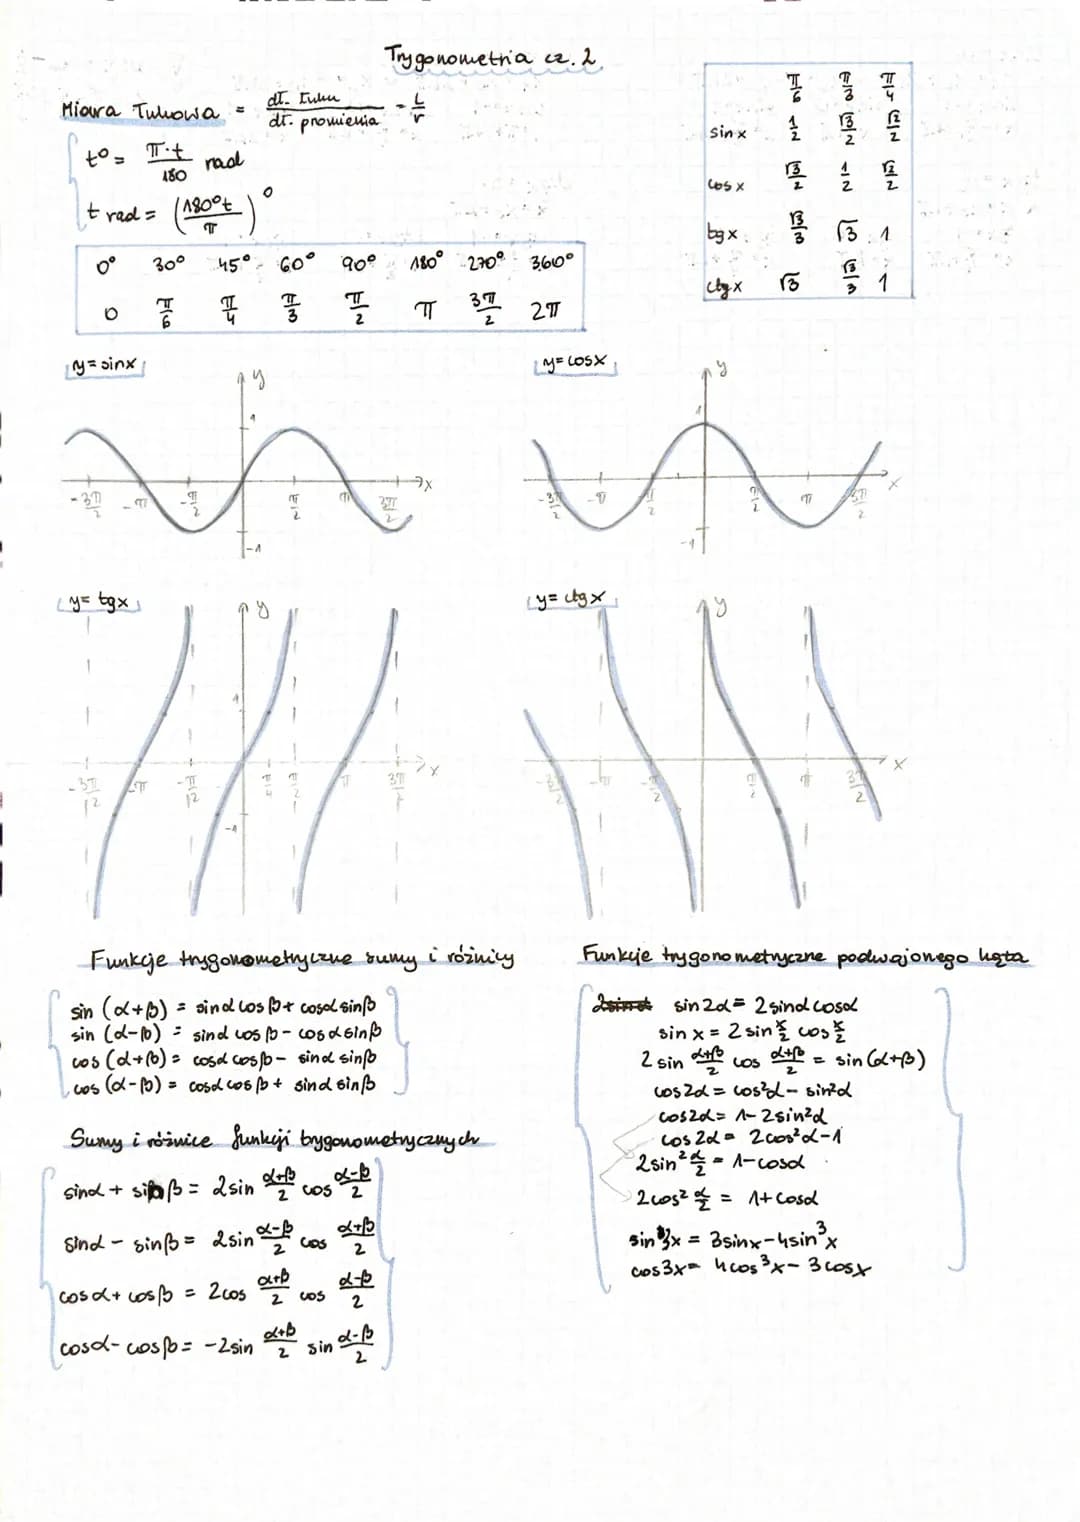 Trygonometria cz. 2
Miara Łukowa = dł. łuku / dł. promienia = L/r
t° = π·t/180 rad
t rad = (180°t/π)°
0° 30° 45° 60° 90° 180° 270° 360°
0 π/6 π/4 π/3 π/2 π 3π/2 2π
π/6 π/3 π/4
sin x 1/2 √3/2 √2/2
cos x √3/2 1/2 √2/2
tg x √3/3 √3 1
ctg x √3 √3/3 1
y = sinx
y
1
x
-3π/2 -π -π/2 π/2 π 3π/2
-1
y = cosx
y
1
x
-3π/2 -π π/2 π/2 π 3π/2
-1
y = tgx
y
1
x
-3π/2 -π -π/2 π/4 π/2 π 3π/2
-1
y = ctgx
y
x
-3π/2 -π -π/2 π/2 π 3π/2
Funkcje trygonometryczne sumy i różnicy
sin (α+β) = sinα cosβ + cosα sinβ
sin (α-β) = sinα cosβ - cosα sinβ
cos (α+β) = cosα cosβ - sinα sinβ
cos (α-β) = cosα cosβ + sinα sinβ
Sumy i różnice funkcji trygonometrycznych
sinα + sinβ = 2sin α+β/2 cos α-β/2
sinα - sinβ = 2sin α-β/2 cos α+β/2
cosα + cosβ = 2cos α+β/2 cos α-β/2
cosα - cosβ = -2sin α+β/2 sin α-β/2
Funkcje trygonometryczne podwojonego kąta
2sinα sin2α = 2sinα cosα
sin x = 2sin x/2 cos x/2
2 sin α+β/2 cos α+β/2 = sin (α+β)
cos2α = cos²α - sin²α
cos2α = 1-2sin²α
cos2α = 2cos²α-1
2sin² α/2 = 1-cosα
2cos² α/2 = 1+cosα
sin3x = 3sinx-4sin³x
cos3x = 4cos³x-3cosx